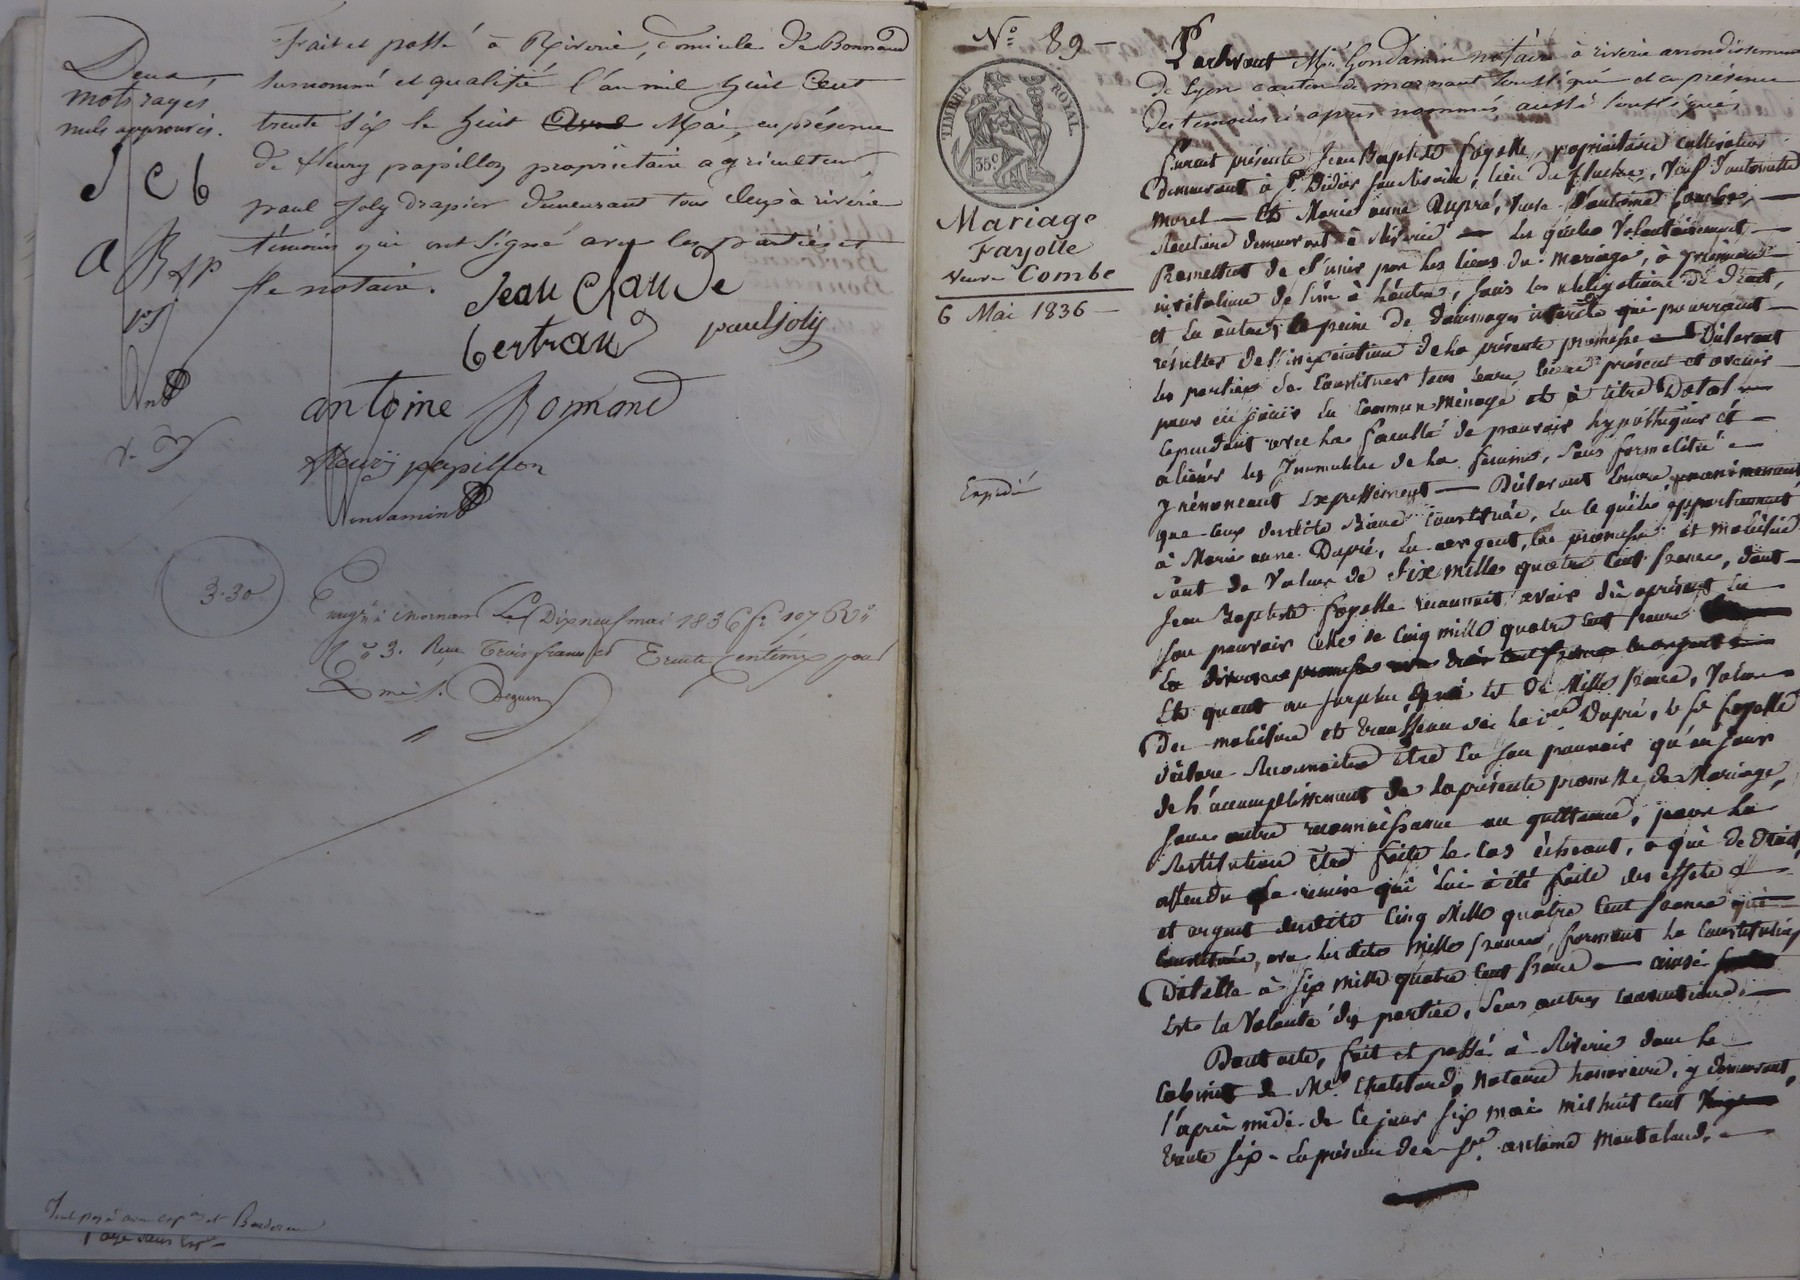 Deux
mots rayés
nuls approuvés.
J C b
A R f p
p J
Fait et passé à Riverie, domicile de Bonnand
surnommé et qualifié l'an mil huit Cent
trente six le huit Avril Mai, en présence
de fleury papillon propriétaire agriculteur
paul Joly drapier demeurant tous deux à riverie
témoins qui ont signé avec les parties et
le notaire.
Jean Claude
bertrand
paul joly
antoine
fleury papillon
Condamin
3.30
Enregté à Mornant Le Dixneuf mai 1836 fo 107 Vo
Co 3. Reçu Trois francs et Trente Centimes pour
No 89 -
TIMBRE ROYAL
35c
Mariage
Fayolle
Veuve Combe
6 Mai 1836 -
Expédié
Pardevant Me Condamin notaire à riverie arrondissement
de Lyon canton de mornant soussigné et en présence
des témoins ci après nommés aussi soussignés
furent présents Jean Baptiste fayolle, propriétaire cultivateur
demeurant à St Didier sous Riverie, lieu de , Veuf d'antoinette
morel - Et Marie anne Dupré, Veuve d'antoine Combe, -
demeurant à Riverie - Lesquels Volontairement -
Promettent de s'unir par les liens du mariage, à première
invitation de l'un à l'autre, sous les obligations de droit,
et en outre à peine de dommages intérêts qui pourraient -
résulter de l'inexécution de la présente promesse - Déclarant
les parties se Constituer tous leurs biens présent et avenir
pour en jouir en Commun Ménage et à titre Dotal -
cependant avec la faculté de pouvoir hypothéquer et -
aliéner les Immeubles de la femme, sans formalité -
y renoncant Expressément - Déclarant Encore
que ceux desdits Biens Constitués, En le quels appartiennent
à Marie anne Dupré, En argent, en promesse et mobilier
sont de Valeur de Six mille quatre Cent francs, dont -
Jean Baptiste fayolle reconnait avoir dès à présent En
son pouvoir celle de Cinq mille quatre cent francs
En diverses promesses
Et quant au surplus qui Est de Mille francs, Valeur
Du mobilier et trousseau de la ve Dupré, le Sr fayolle
déclare Reconnaitre être En son pouvoir qu'au jour
de l'accomplissement de la présente promesse de Mariage,
sans autre reconnaissance ou quittance, pour la
Restitution être faite le Cas échéant, à qui de Droit,
attendu la remise qui lui a été faite des effets
et argent desdits Cinq Mille quatre Cent francs qui
Constitués, avec les dits Mille francs, forment la Constitution
Dotale à six mille quatre Cent francs - ainsi
Est la Volonté des parties, Sans autres Conventions. -
Dont acte, fait et passé à Riverie dans le
Cabinet de Me Chatelard, Notaire honoraire, y demeurant,
l'après midi de Ce jour six mai mil huit Cent
trente six - En présence de Sr antoine Montaland, -